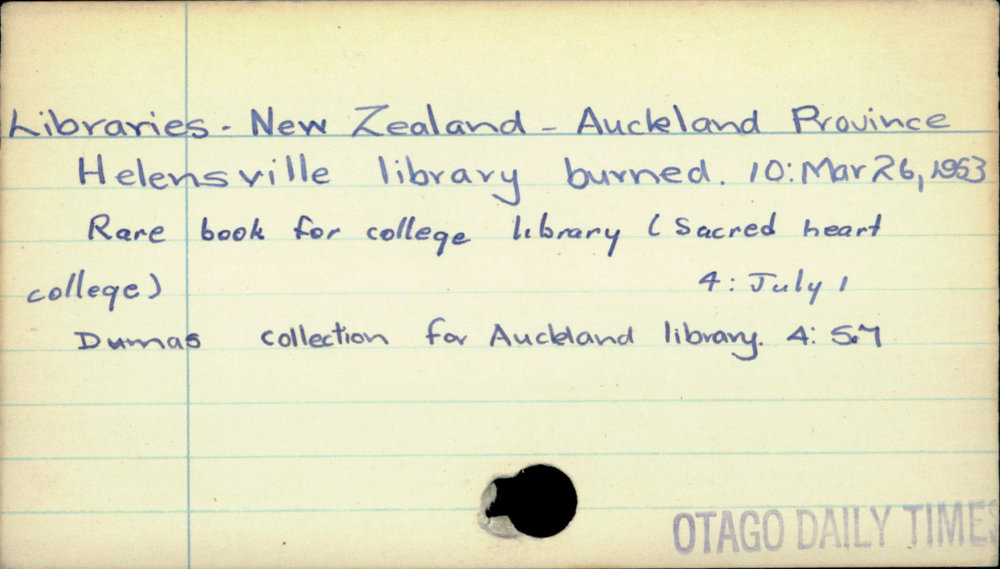 Libraries - New Zealand - Auckland Province
Helensville library burned. 10: Mar 26, 1953
Rare book for college library (Sacred heart
college) 4: July 1
Dumas collection for Auckland library. 4: S.7
OTAGO DAILY TIMES